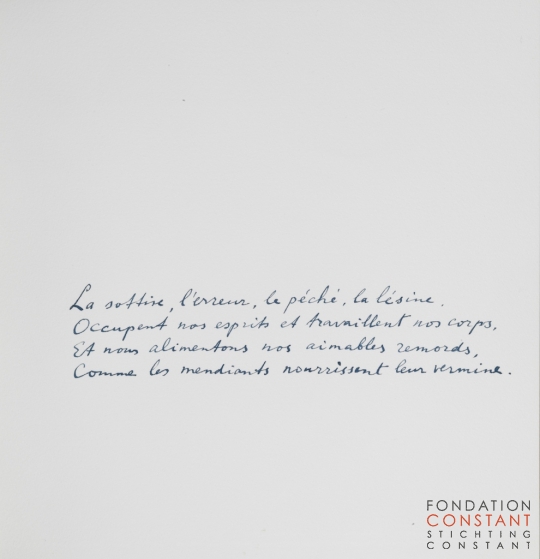 La sottise, l'erreur, le péché, la lésine.
Occupent nos esprits et travaillent nos corps,
Et nous alimentons nos aimables remords,
Comme les mendiants nourrissent leur vermine.
FONDATION
CONSTANT
STICHTING
CONSTANT